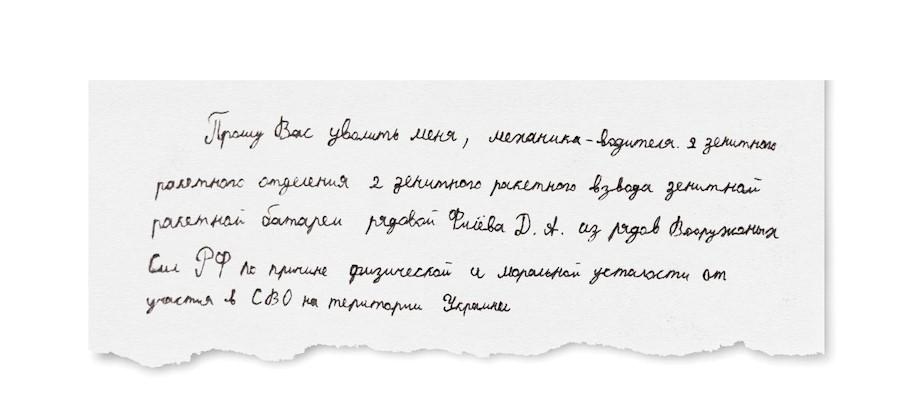 Прошу Вас уволить меня, механика-водителя 2 зенитного
ракетного отделения 2 зенитного ракетного взвода зенитной
ракетной батареи рядовой Фиёва Д. А. из рядов Вооружоных
Сил РФ по причине физической и моральной усталости от
участия в СВО на територии Украины